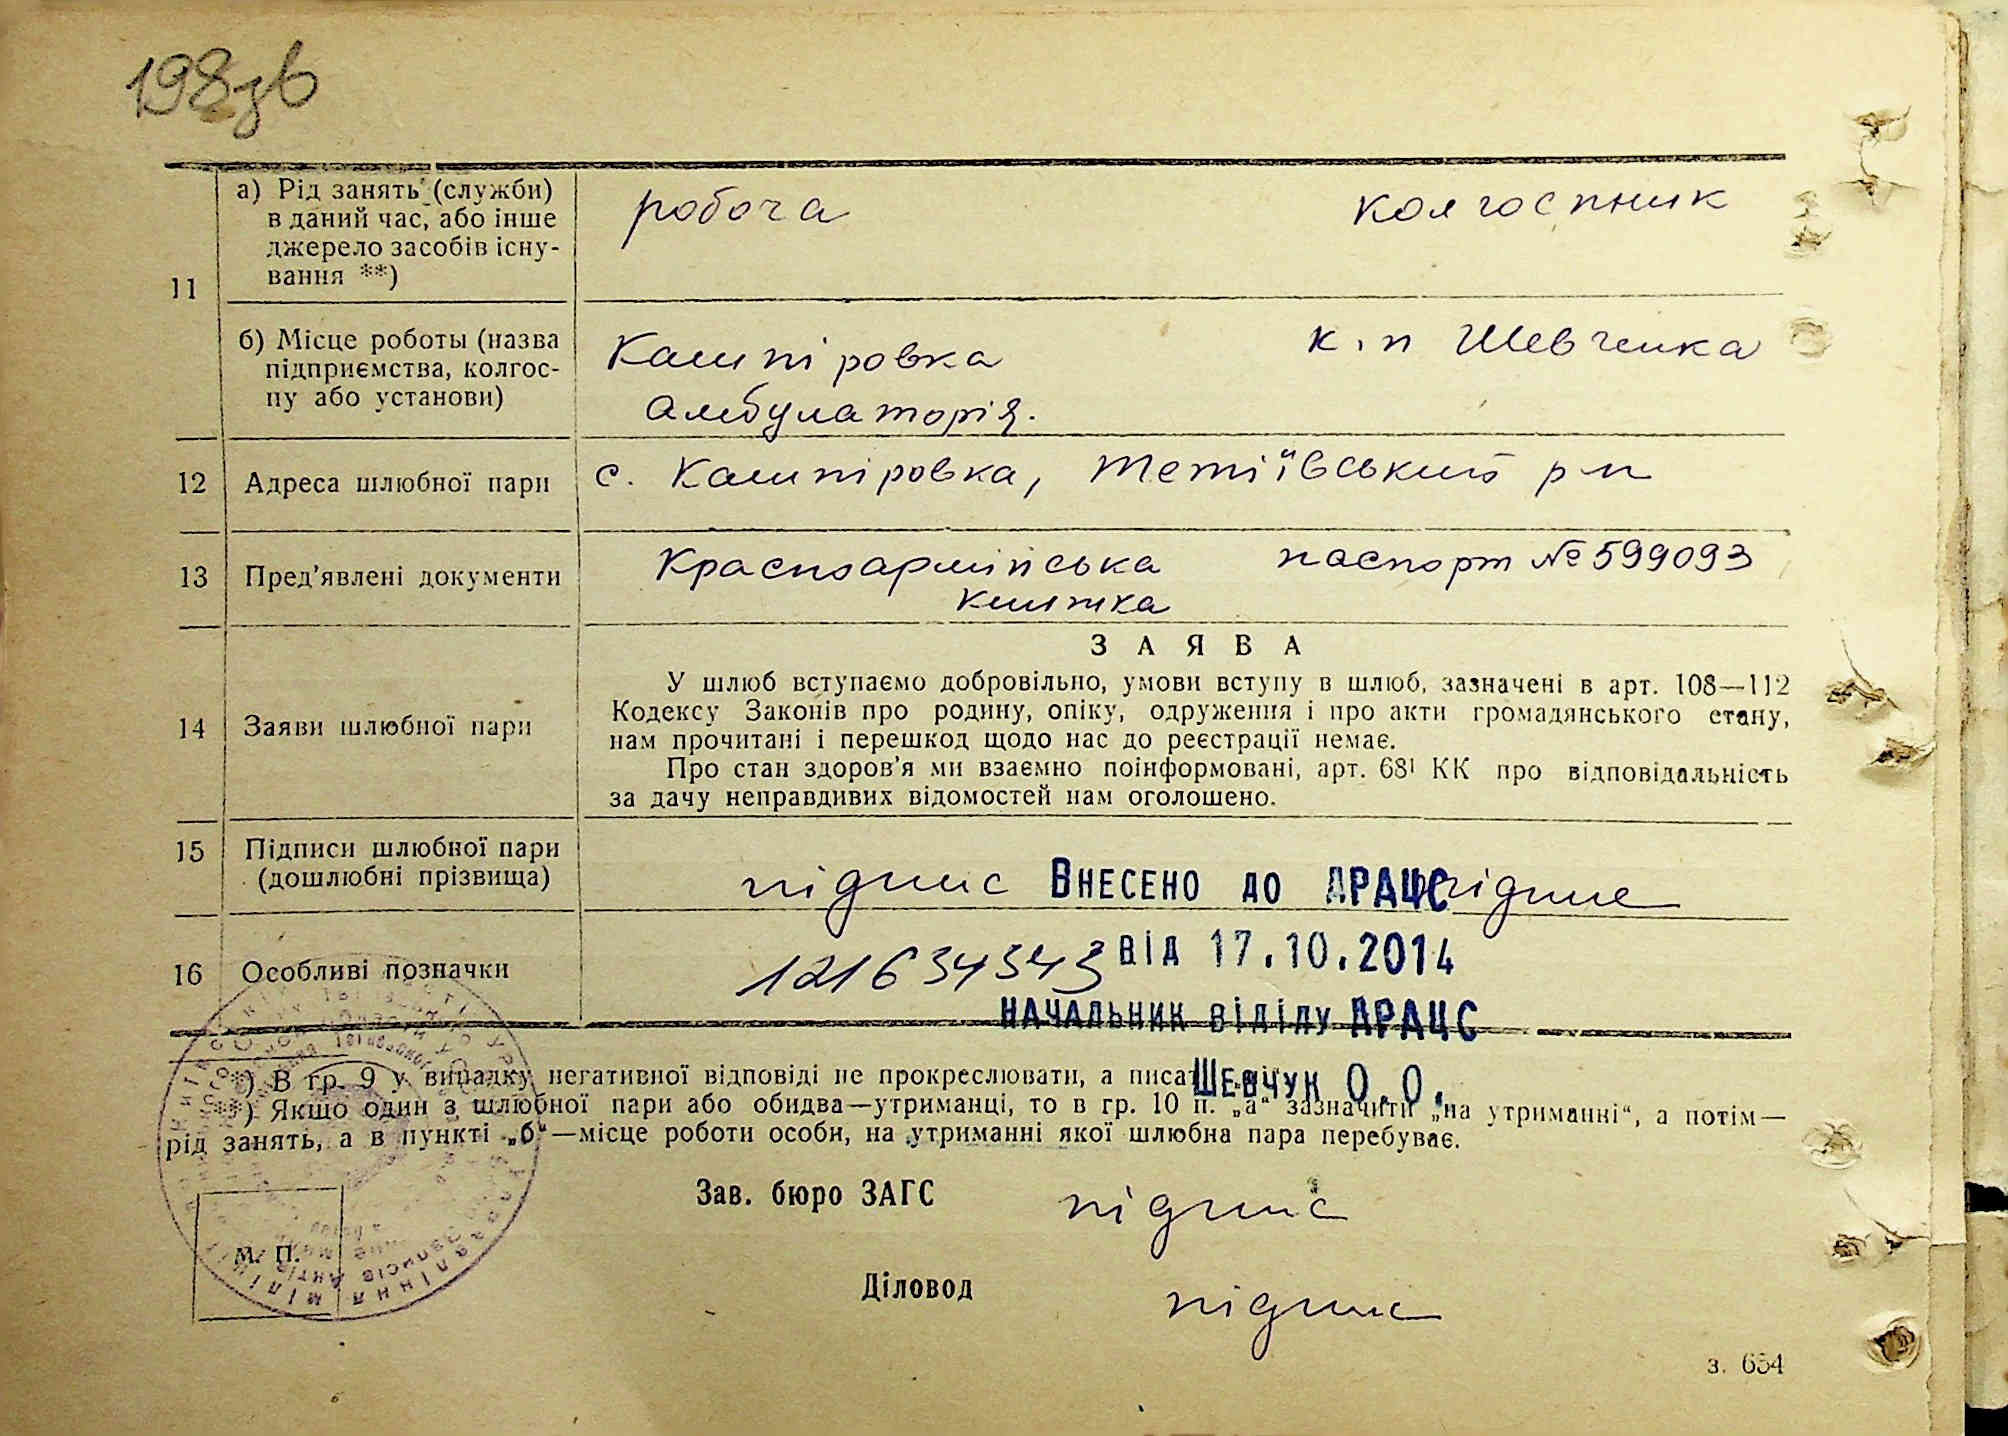 198зв
11
а) Рід занять (служби)
в даний час, або інше
джерело засобів існу-
вання **)
робоча
колгоспник
б) Місце роботи (назва
підприємства, колгос-
пу або установи)
Кашпіровка
амбулаторія.
к.п Шевченка
12
Адреса шлюбної пари
с. Кашпіровка, Тетіївський р-н
13
Пред’явлені документи
Красноармійська
книжка
паспорт № 599093
14
Заяви шлюбної пари
ЗАЯВА
У шлюб вступаємо добровільно, умови вступу в шлюб, зазначені в арт. 108—112
Кодексу Законів про родину, опіку, одруження і про акти громадянського стану,
нам прочитані і перешкод щодо нас до реєстрації немає.
Про стан здоров’я ми взаємно поінформовані, арт. 68¹ КК про відповідальність
за дачу неправдивих відомостей нам оголошено.
15
Підписи шлюбної пари
(дошлюбні прізвища)
підпис
Внесено до ДРАЦС
підпис
16
Особливі позначки
121634343
від 17.10.2014
начальник відділу ДРАЦС
Шевчук О.О.
*) В гр. 9 у випадку негативної відповіді не прокреслювати, а писати
**) Якщо один з шлюбної пари або обидва—утриманці, то в гр. 10 п. „а“ зазначити „на утриманні“, а потім—
рід занять, а в пункті „б“—місце роботи особи, на утриманні якої шлюбна пара перебуває.
Зав. бюро ЗАГС
підпис
М. П.
Діловод
підпис
з. 654